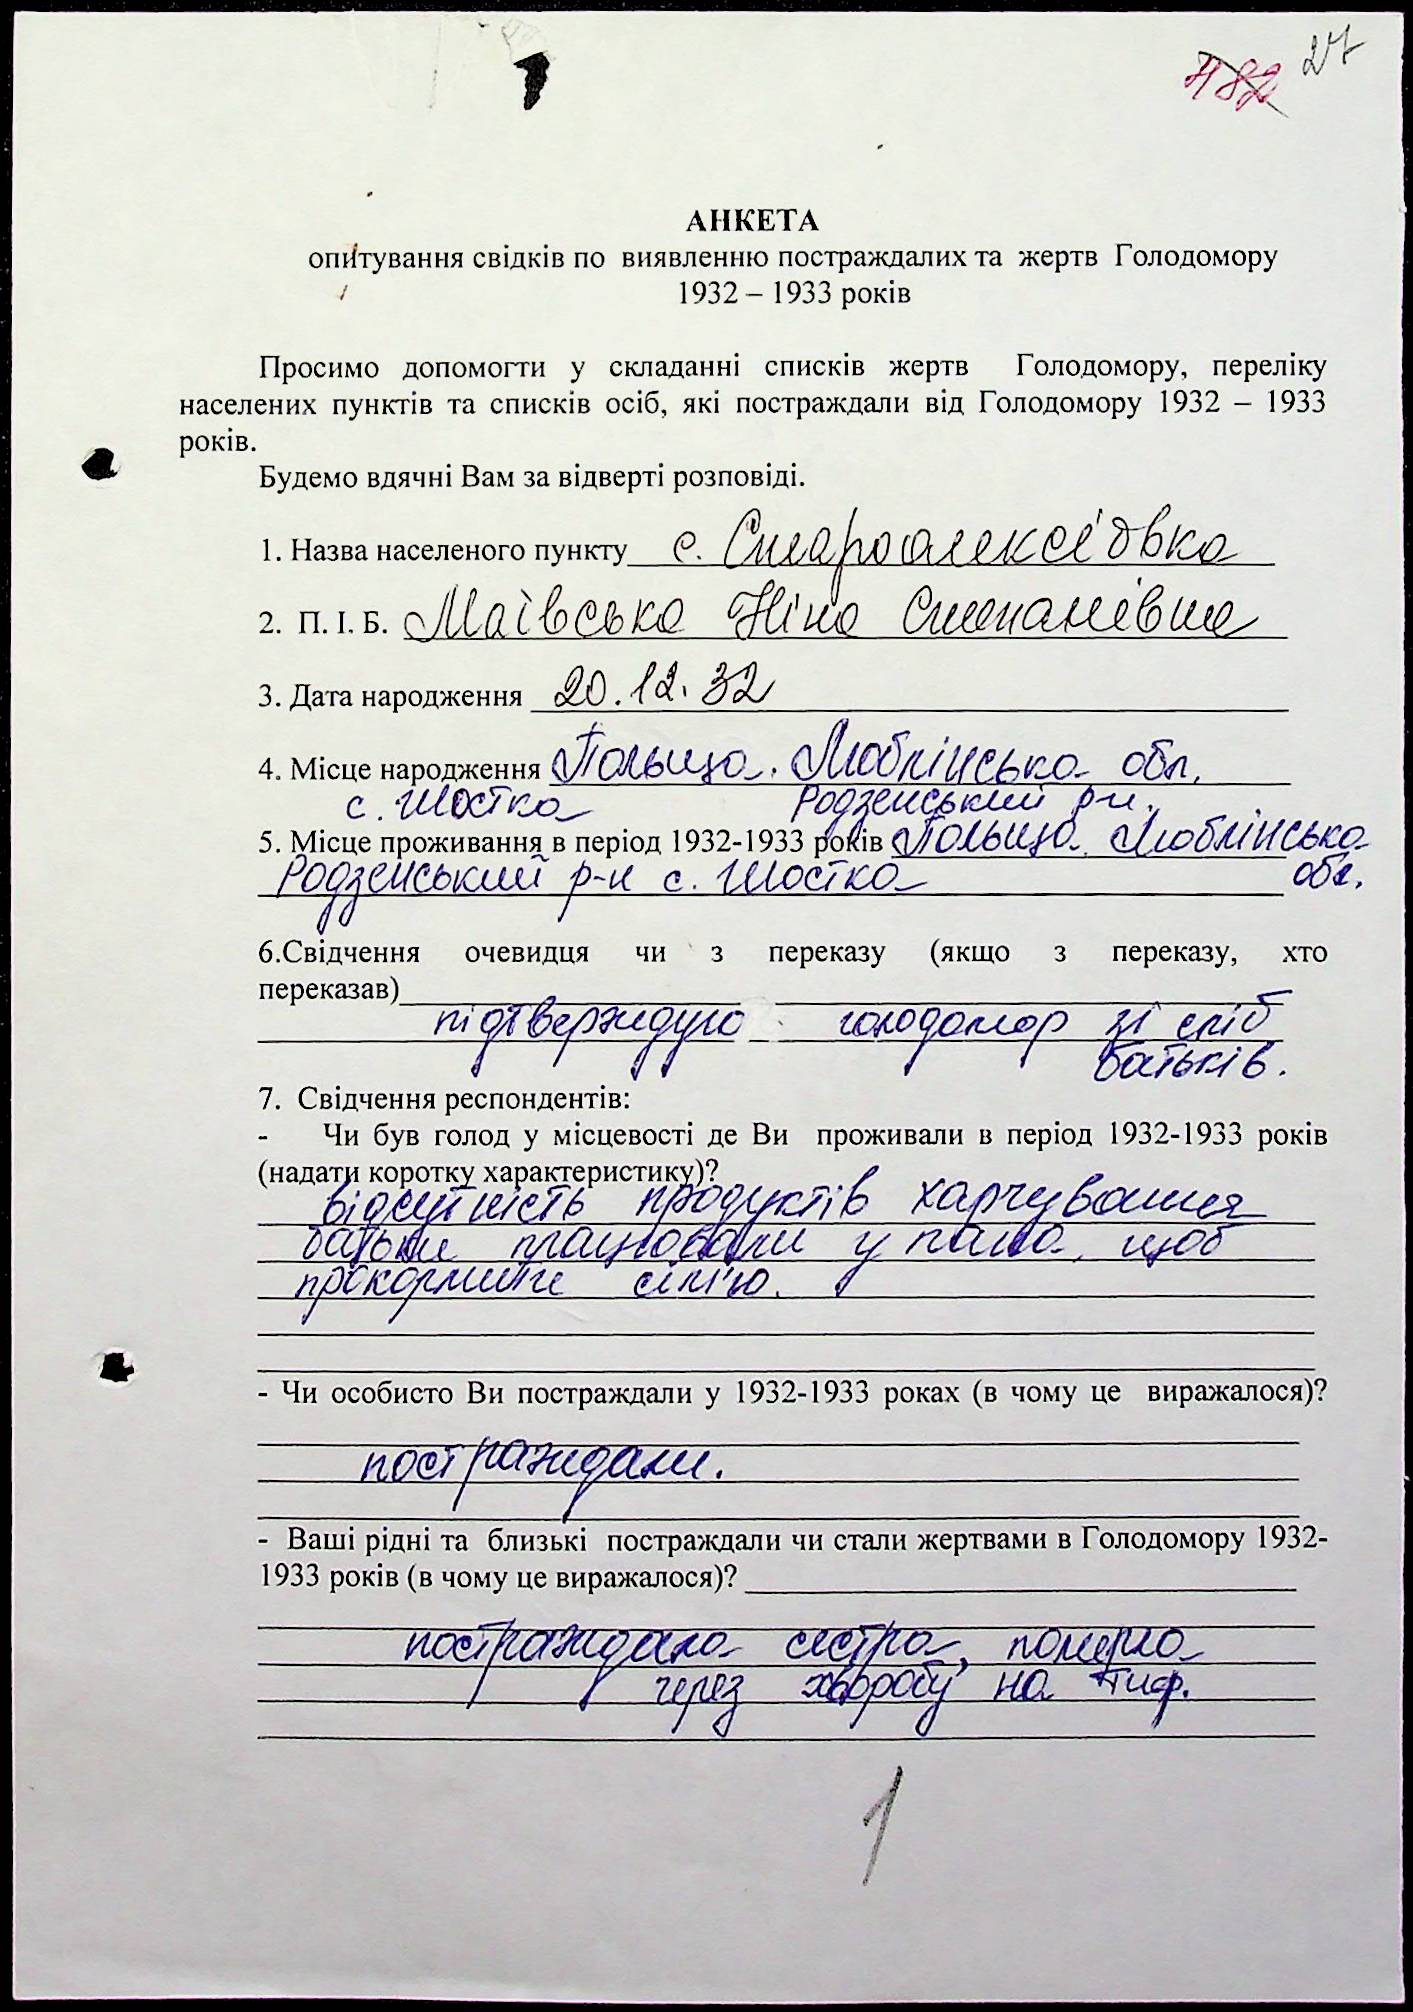 182 27
АНКЕТА
опитування свідків по виявленню постраждалих та жертв Голодомору
1932 – 1933 років
Просимо допомогти у складанні списків жертв Голодомору, переліку
населених пунктів та списків осіб, які постраждали від Голодомору 1932 – 1933
років.
Будемо вдячні Вам за відверті розповіді.
1. Назва населеного пункту с. Староалексіївка
2. П. І. Б. Маївська Ніна Степанівна
3. Дата народження 20.12.32
4. Місце народження Польща. Люблінська обл.
с. Шостка Родзенський р-н.
5. Місце проживання в період 1932-1933 років Польща. Люблінська
Родзенський р-н с. Шостка обл.
6.Свідчення очевидця чи з переказу (якщо з переказу, хто
переказав)
підтверждую голодомор зі слів
батьків.
7. Свідчення респондентів:
- Чи був голод у місцевості де Ви проживали в період 1932-1933 років
(надати коротку характеристику)?
відсутність продуктів харчування
батьки працювали у пана, щоб
прокормити сім'ю.
- Чи особисто Ви постраждали у 1932-1933 роках (в чому це виражалося)?
постраждали.
- Ваші рідні та близькі постраждали чи стали жертвами в Голодомору 1932-
1933 років (в чому це виражалося)?
постраждала сестра, померла
через хворобу на тиф.
1